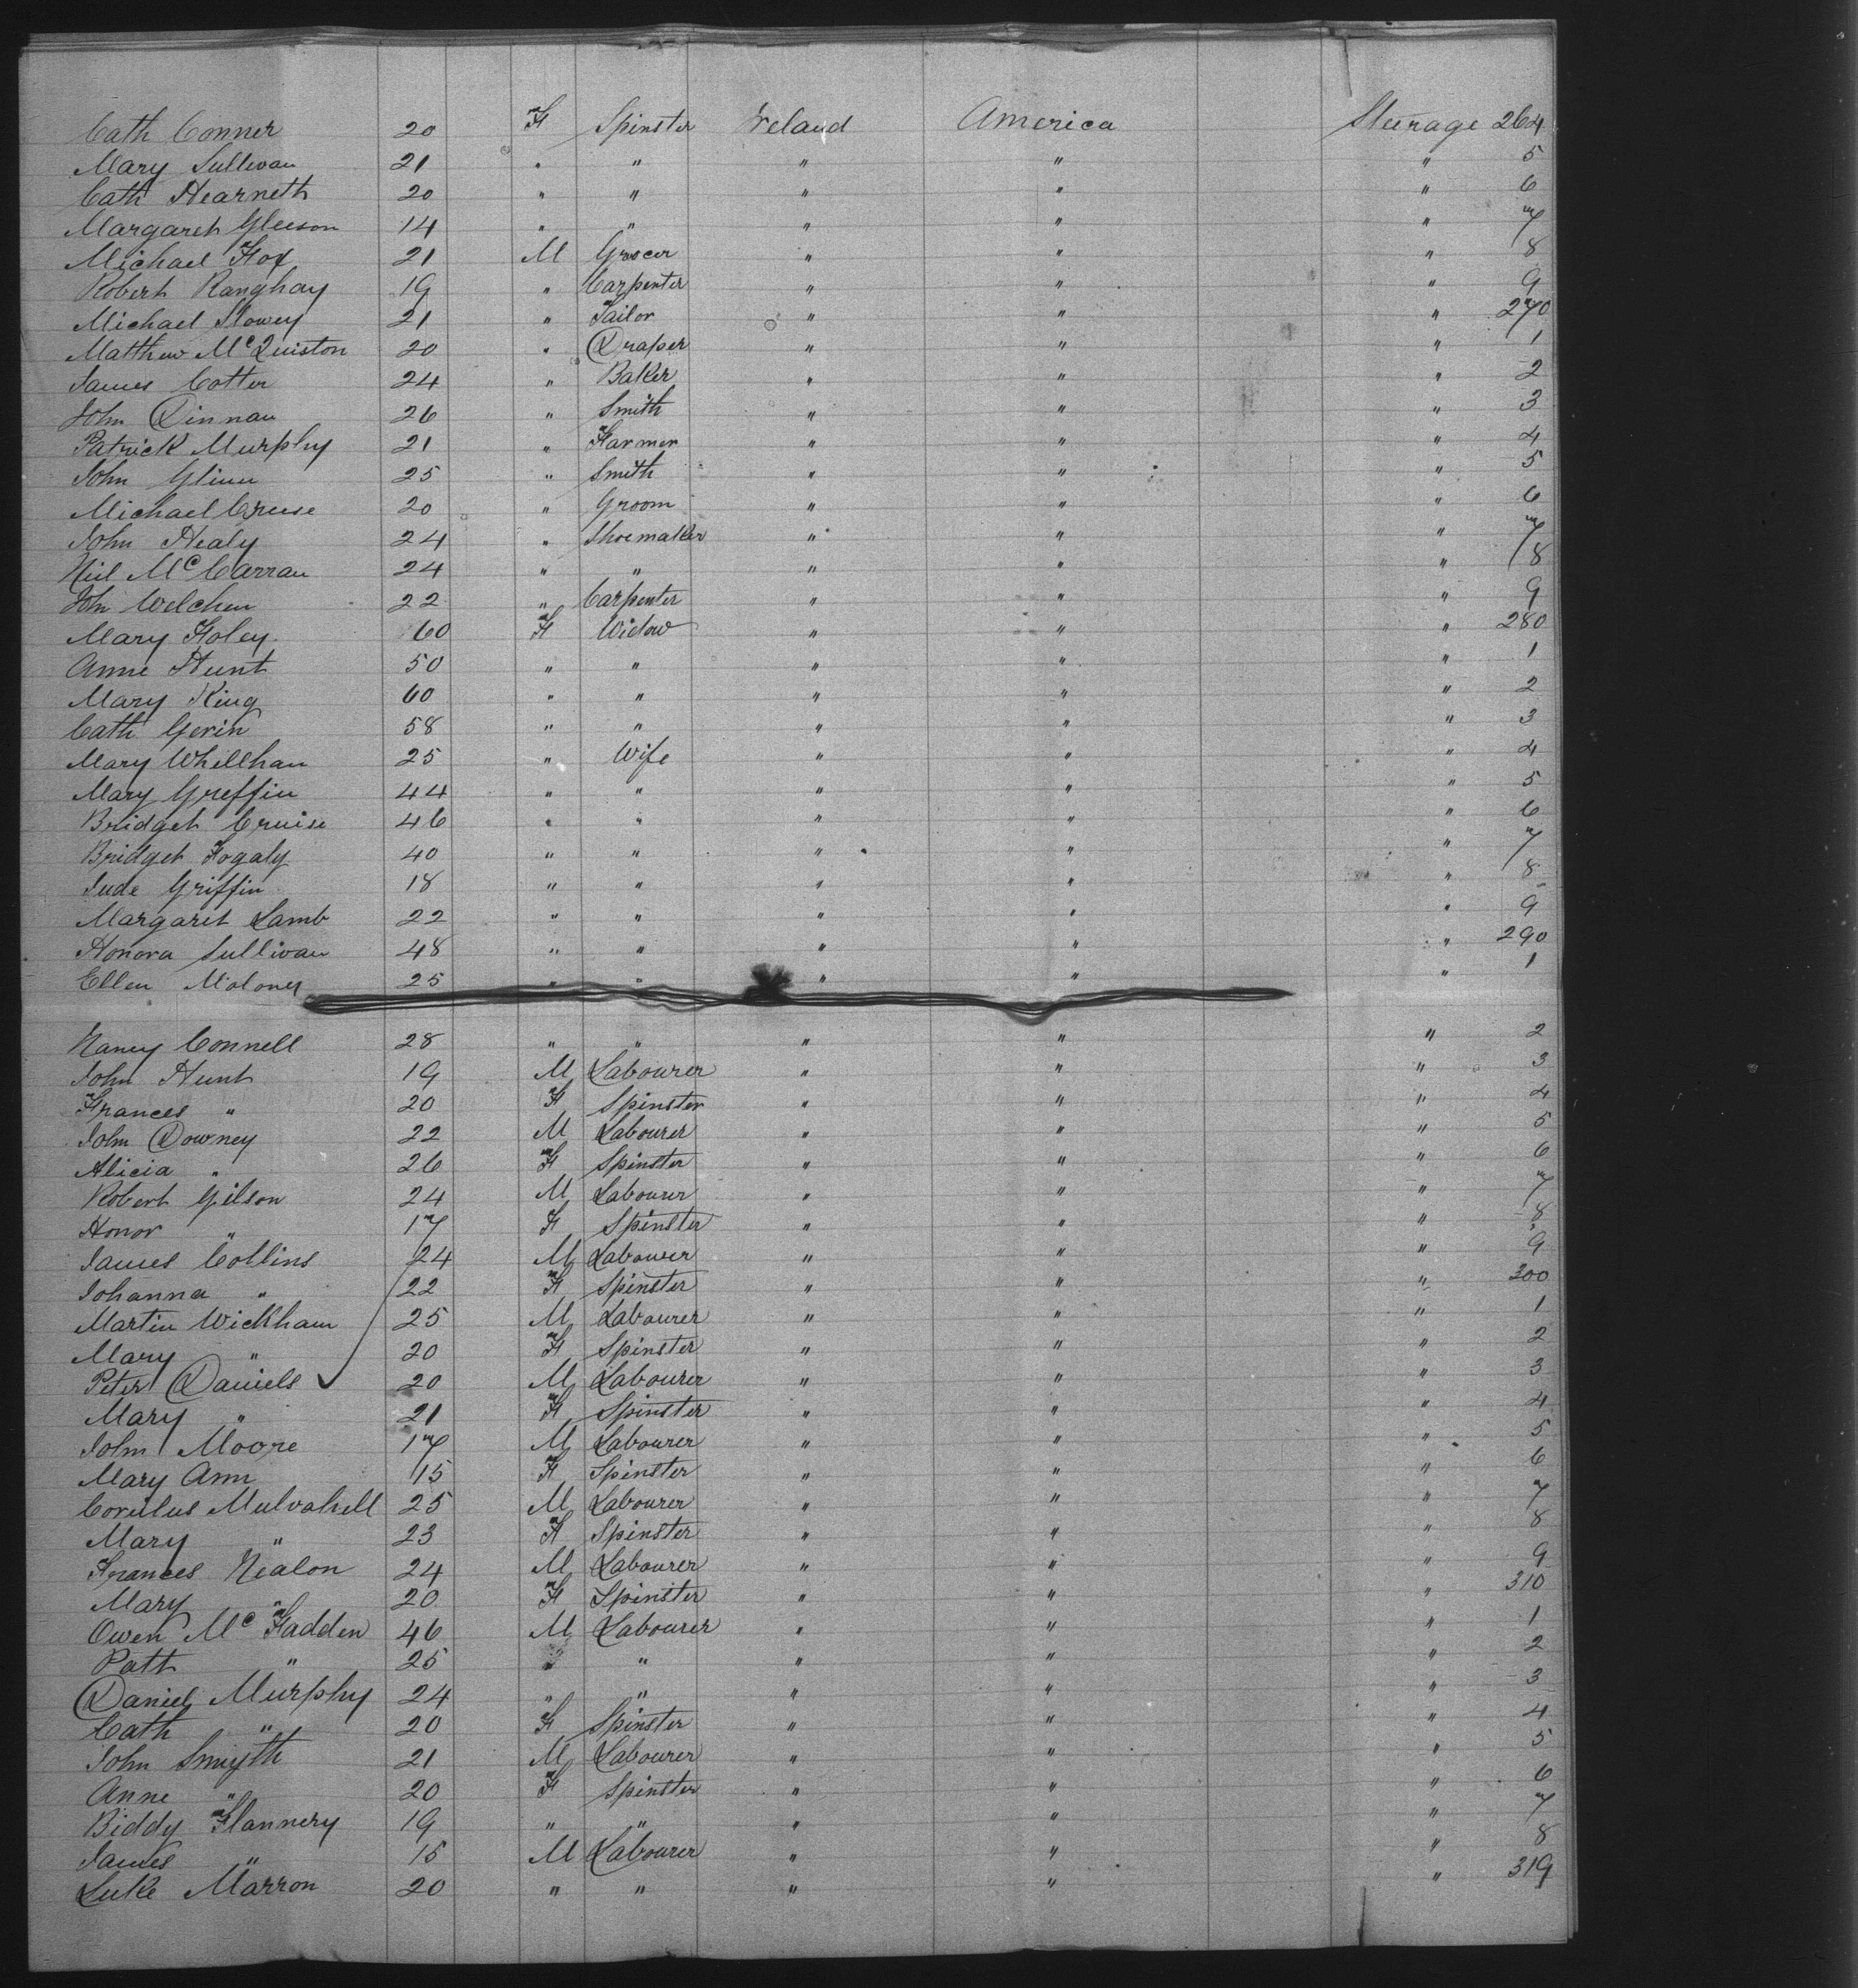 Cath Conner 20 F Spinster Ireland America Steerage 264
Mary Sullivan 21 " " " " " 5
Cath Hearneth 20 " " " " " 6
Margaret Gleeson 14 " " " " " 7
Michael Fox 21 M Grocer " " " 8
Robert Ranghay 19 " Carpenter " " " 9
Michael Slowey 21 " Tailor " " " 270
Matthew McQuiston 20 " Draper " " " 1
James Cotter 24 " Baker " " " 2
John Dinnan 26 " Smith " " " 3
Patrick Murphy 21 " Farmer " " " 4
John Glinn 25 " Smith " " " 5
Michael Cruise 20 " Groom " " " 6
John Healy 24 " Shoemaker " " " 7
Neil McCarran 24 " " " " " 8
John Welchen 22 " Carpenter " " " 9
Mary Foley 60 F Widow " " " 280
Anne Hunt 50 " " " " " 1
Mary King 60 " " " " " 2
Cath Gerin 58 " " " " " 3
Mary Whillhan 25 " Wife " " " 4
Mary Greffin 44 " " " " " 5
Bridget Cruise 46 " " " " " 6
Bridget Fogaly 40 " " " " " 7
Jude Griffin 18 " " " " " 8
Margaret Lamb 22 " " " " " 9
Honora Sullivan 48 " " " " " 290
Ellen Moloney 25 " " " " " 1
Nancy Connell 28 " " " " " 2
John Hunt 19 M Labourer " " " 3
Frances " 20 F Spinster " " " 4
John Downey 22 M Labourer " " " 5
Alicia " 26 F Spinster " " " 6
Robert Gilson 24 M Labourer " " " 7
Honor " 17 F Spinster " " " 8
James Collins 24 M Labourer " " " 9
Johanna " 22 F Spinster " " " 300
Martin Wickham 25 M Labourer " " " 1
Mary " 20 F Spinster " " " 2
Peter Daniels 20 M Labourer " " " 3
Mary " 21 F Spinster " " " 4
John Moore 17 M Labourer " " " 5
Mary Ann 15 F Spinster " " " 6
Corulus Mulvahill 25 M Labourer " " " 7
Mary " 23 F Spinster " " " 8
Frances Nealon 24 M Labourer " " " 9
Mary " 20 F Spinster " " " 310
Owen McFadden 46 M Labourer " " " 1
Patt " 25 " " " " " 2
Daniel Murphy 24 " " " " " 3
Cath " 20 F Spinster " " " 4
John Smyth 21 M Labourer " " " 5
Anne " 20 F Spinster " " " 6
Biddy Flannery 19 " " " " " 7
James " 15 M Labourer " " " 8
Luke Marron 20 " " " " " 319